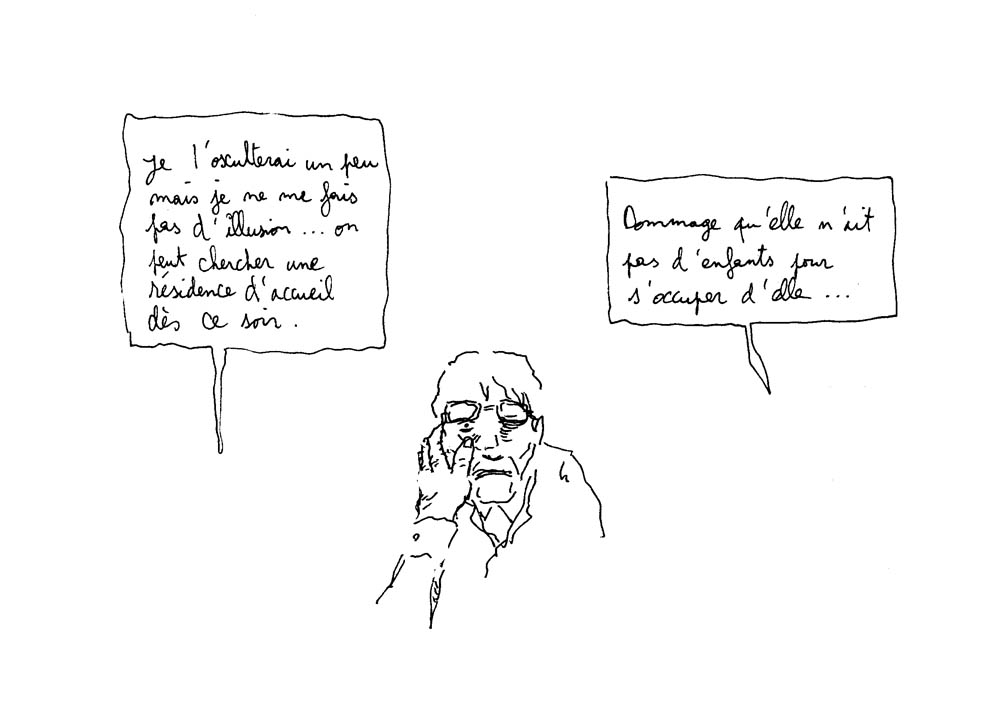 je l'oscülterai un peu
mais je ne me fais
pas d'illusion ... on
peut chercher une
résidence d'accueil
dès ce soir.
Dommage qu'elle n'ait
pas d'enfants pour
s'occuper d'elle ...